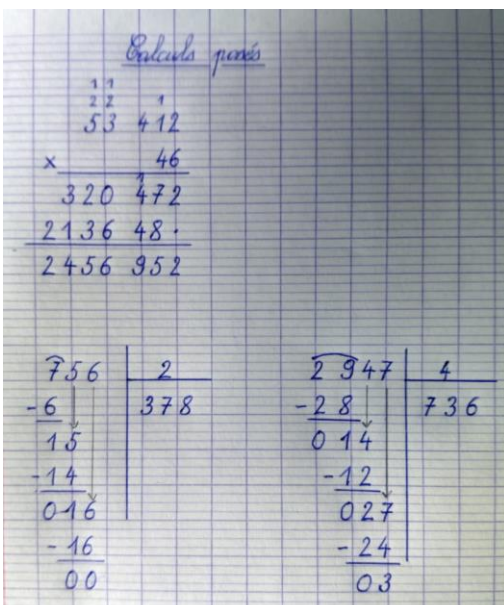 Calculs posés
1 1
2 2 1
53 412
× 46
1
320 472
2136 48.
2456 952
756 2
-6 378
15
-14
016
-16
00
2 947 4
-2 8 736
0 14
-12
027
-24
03